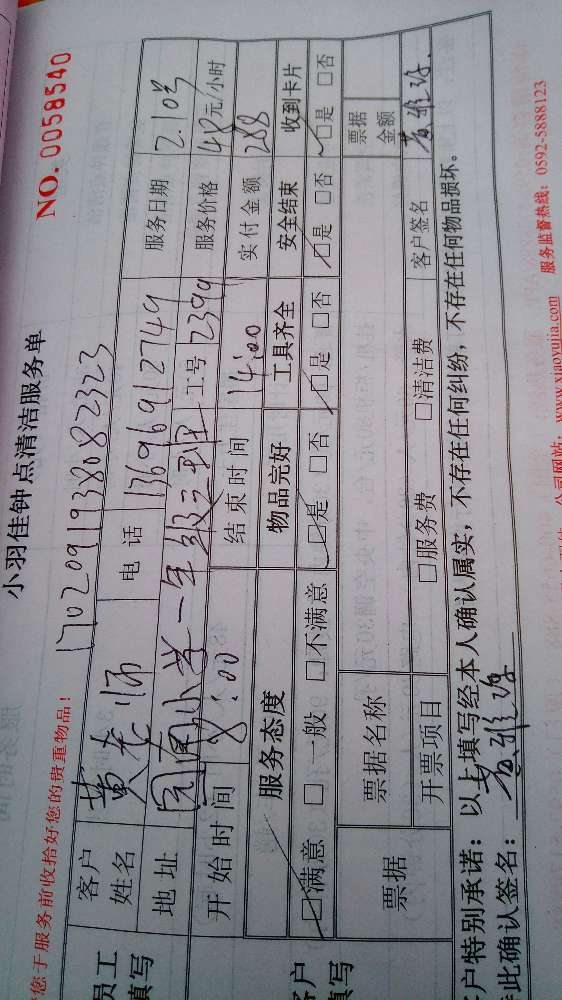 小羽佳钟点清洁服务单
NO. 0058540
您于服务前收拾好您的贵重物品!
1702091938082323
员工
填写
客户姓名 黄老师 电话 13696912749 服务日期 2.10号
地址 园南小学一年级三班 工号 2399 服务价格 48元/小时
开始时间 8:00 结束时间 14:00 实付金额 288
服务态度 物品完好 工具齐全 安全结束 收到卡片
☑满意 □一般 □不满意 ☑是 □否 ☑是 □否 ☑是 □否 ☑是 □否
客户
填写
票据 票据名称 票据金额
开票项目 □服务费 □清洁费 客户签名
户特别承诺:以上填写经本人确认属实,不存在任何纠纷,不存在任何物品损坏。
此确认签名:
公司网站:www.xiaoyujia.com 服务监督热线:0592-5888123